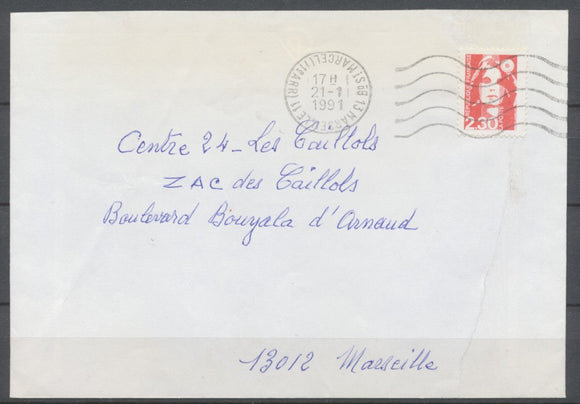 17H
21-1
1991
13 MARSEILLE 11 ST MARCEL (11e ARR)
2,30
Centre 24 - Les Caillols
ZAC des Caillols
Boulevard Bouyala d'Arnaud
13012 Marseille